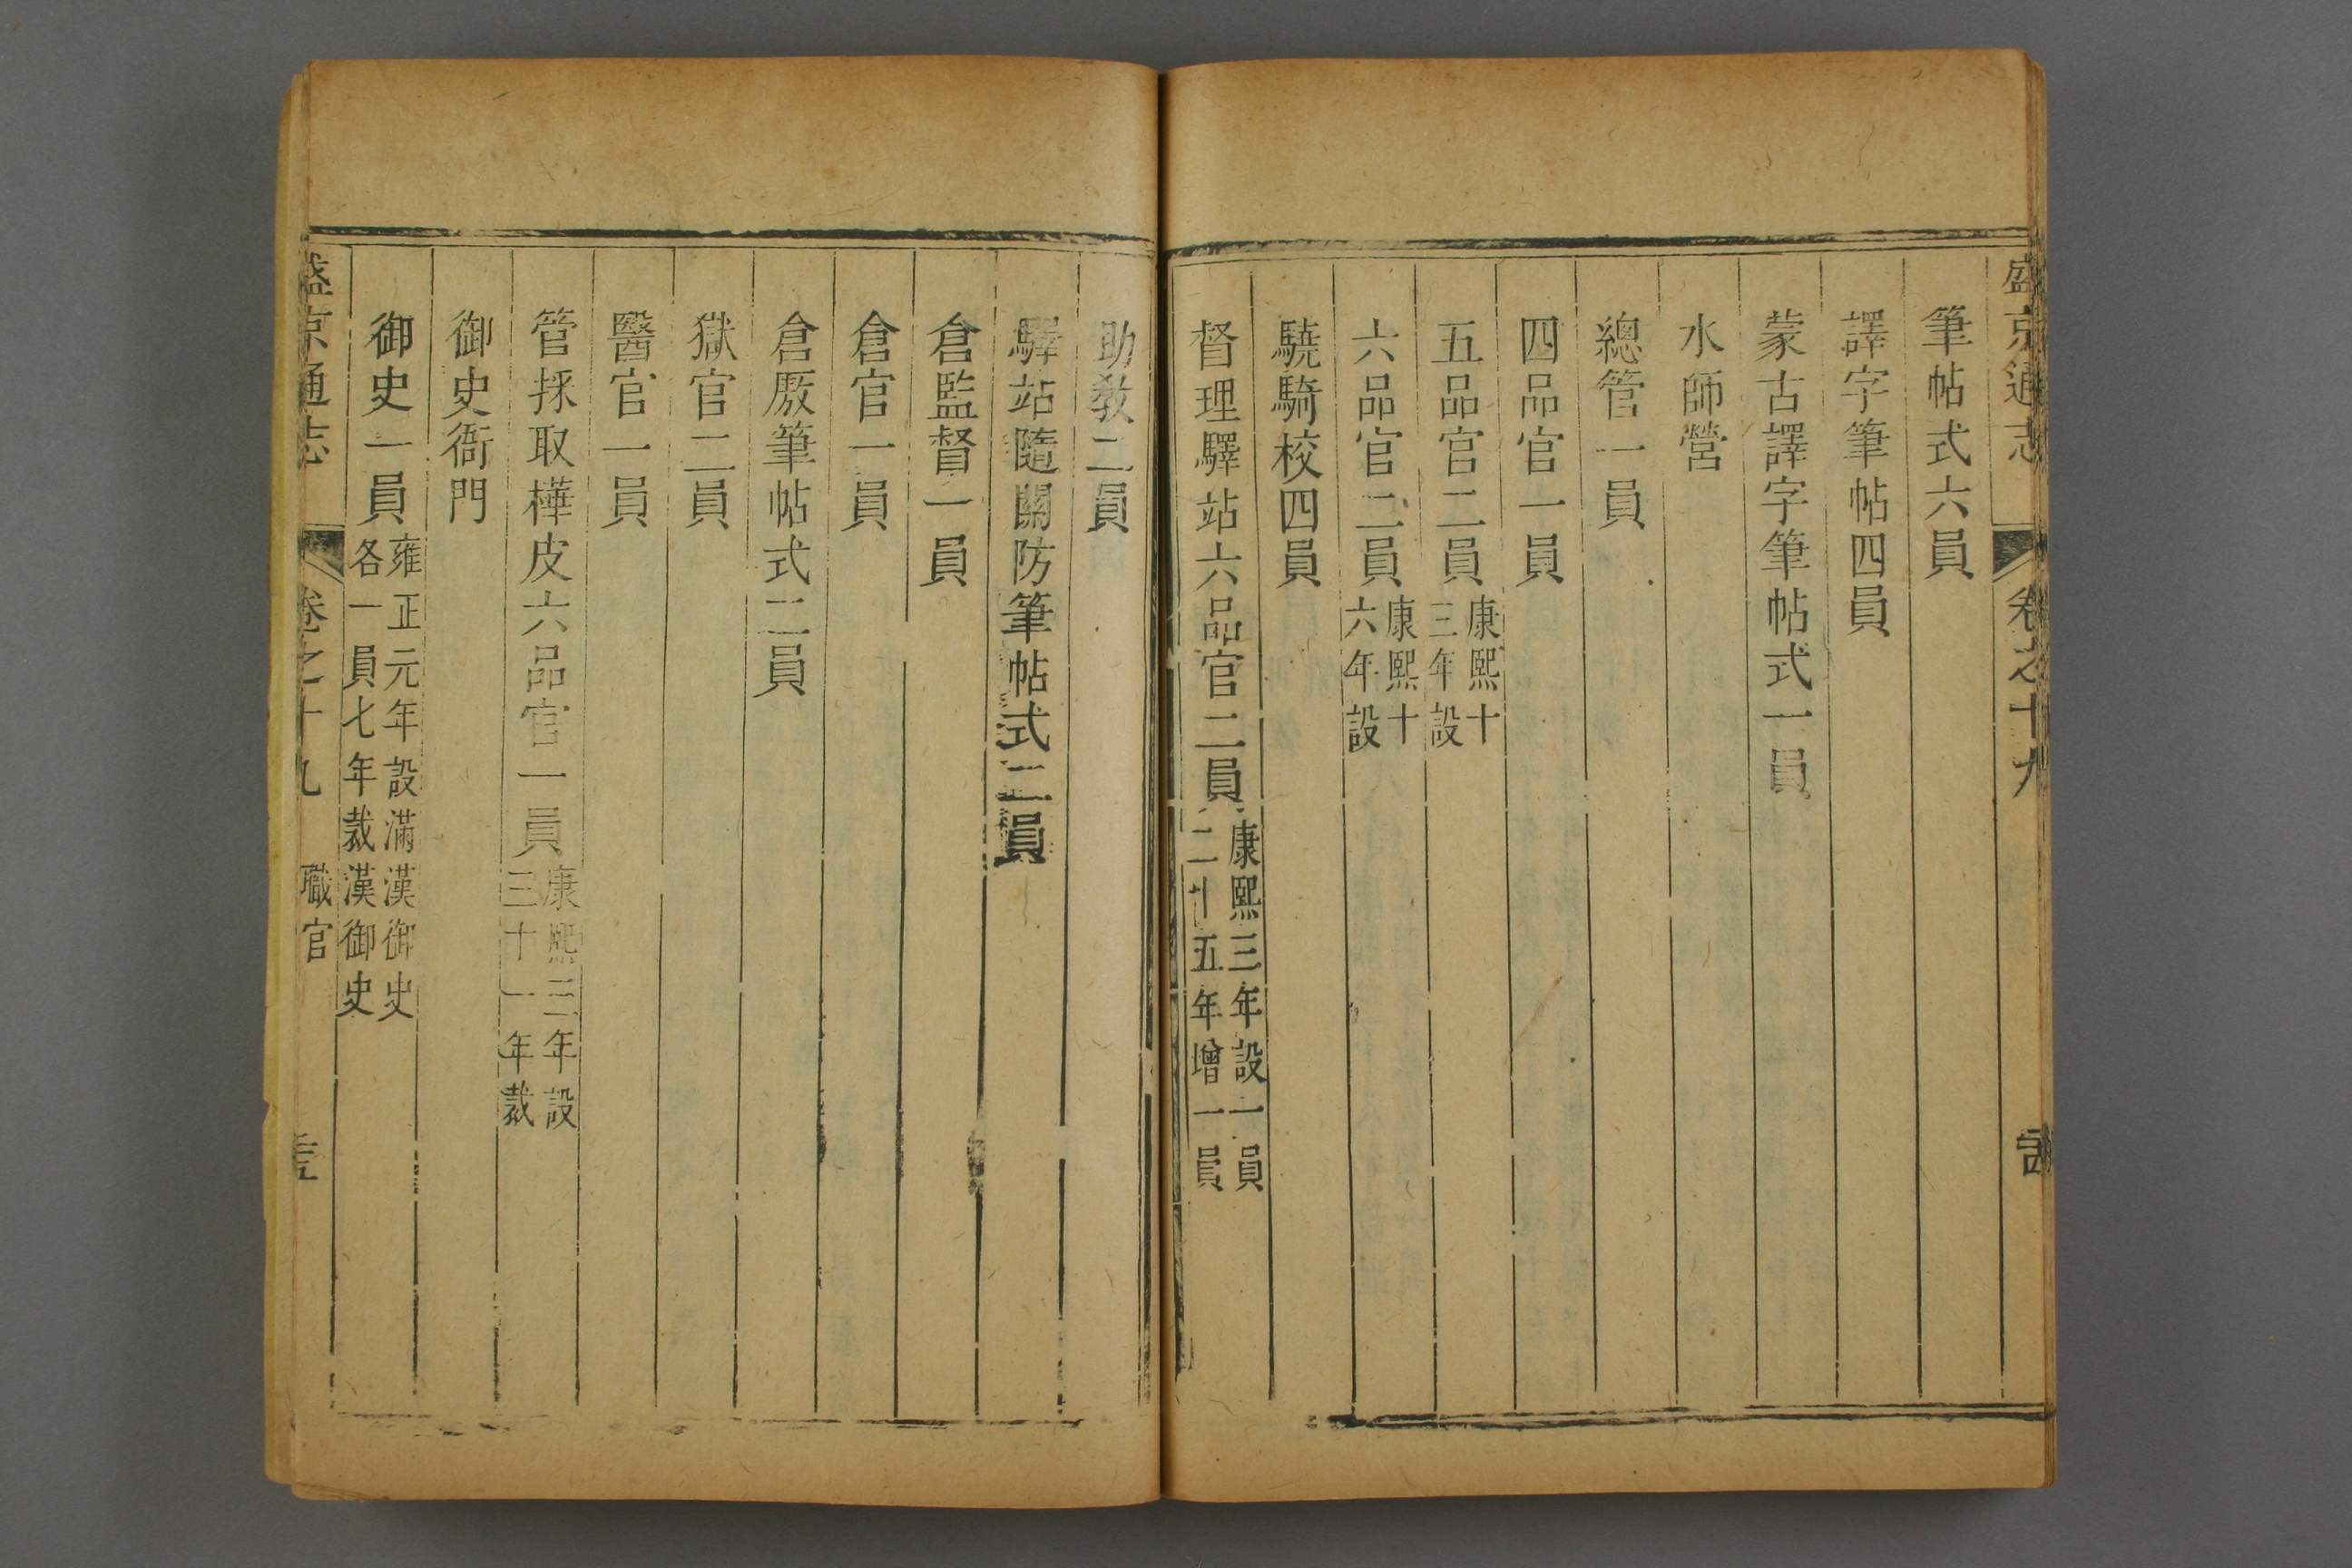 盛京通志 卷之十九
筆帖式六員
譯字筆帖四員
蒙古譯字筆帖式一員
水師營
總管一員
四品官一員
五品官二員 康熙十三年設
六品官二員 康熙十六年設
驍騎校四員
督理驛站六品官二員 康熙三年設一員二十五年增一員
助教二員
驛站隨關防筆帖式二員
倉監督一員
倉官一員
倉廒筆帖式二員
獄官二員
醫官一員
管採取樺皮六品官一員 康熙三年設三十一年裁
御史衙門
御史一員 雍正元年設滿漢御史各一員七年裁漢御史
盛京通志 卷之十九 職官